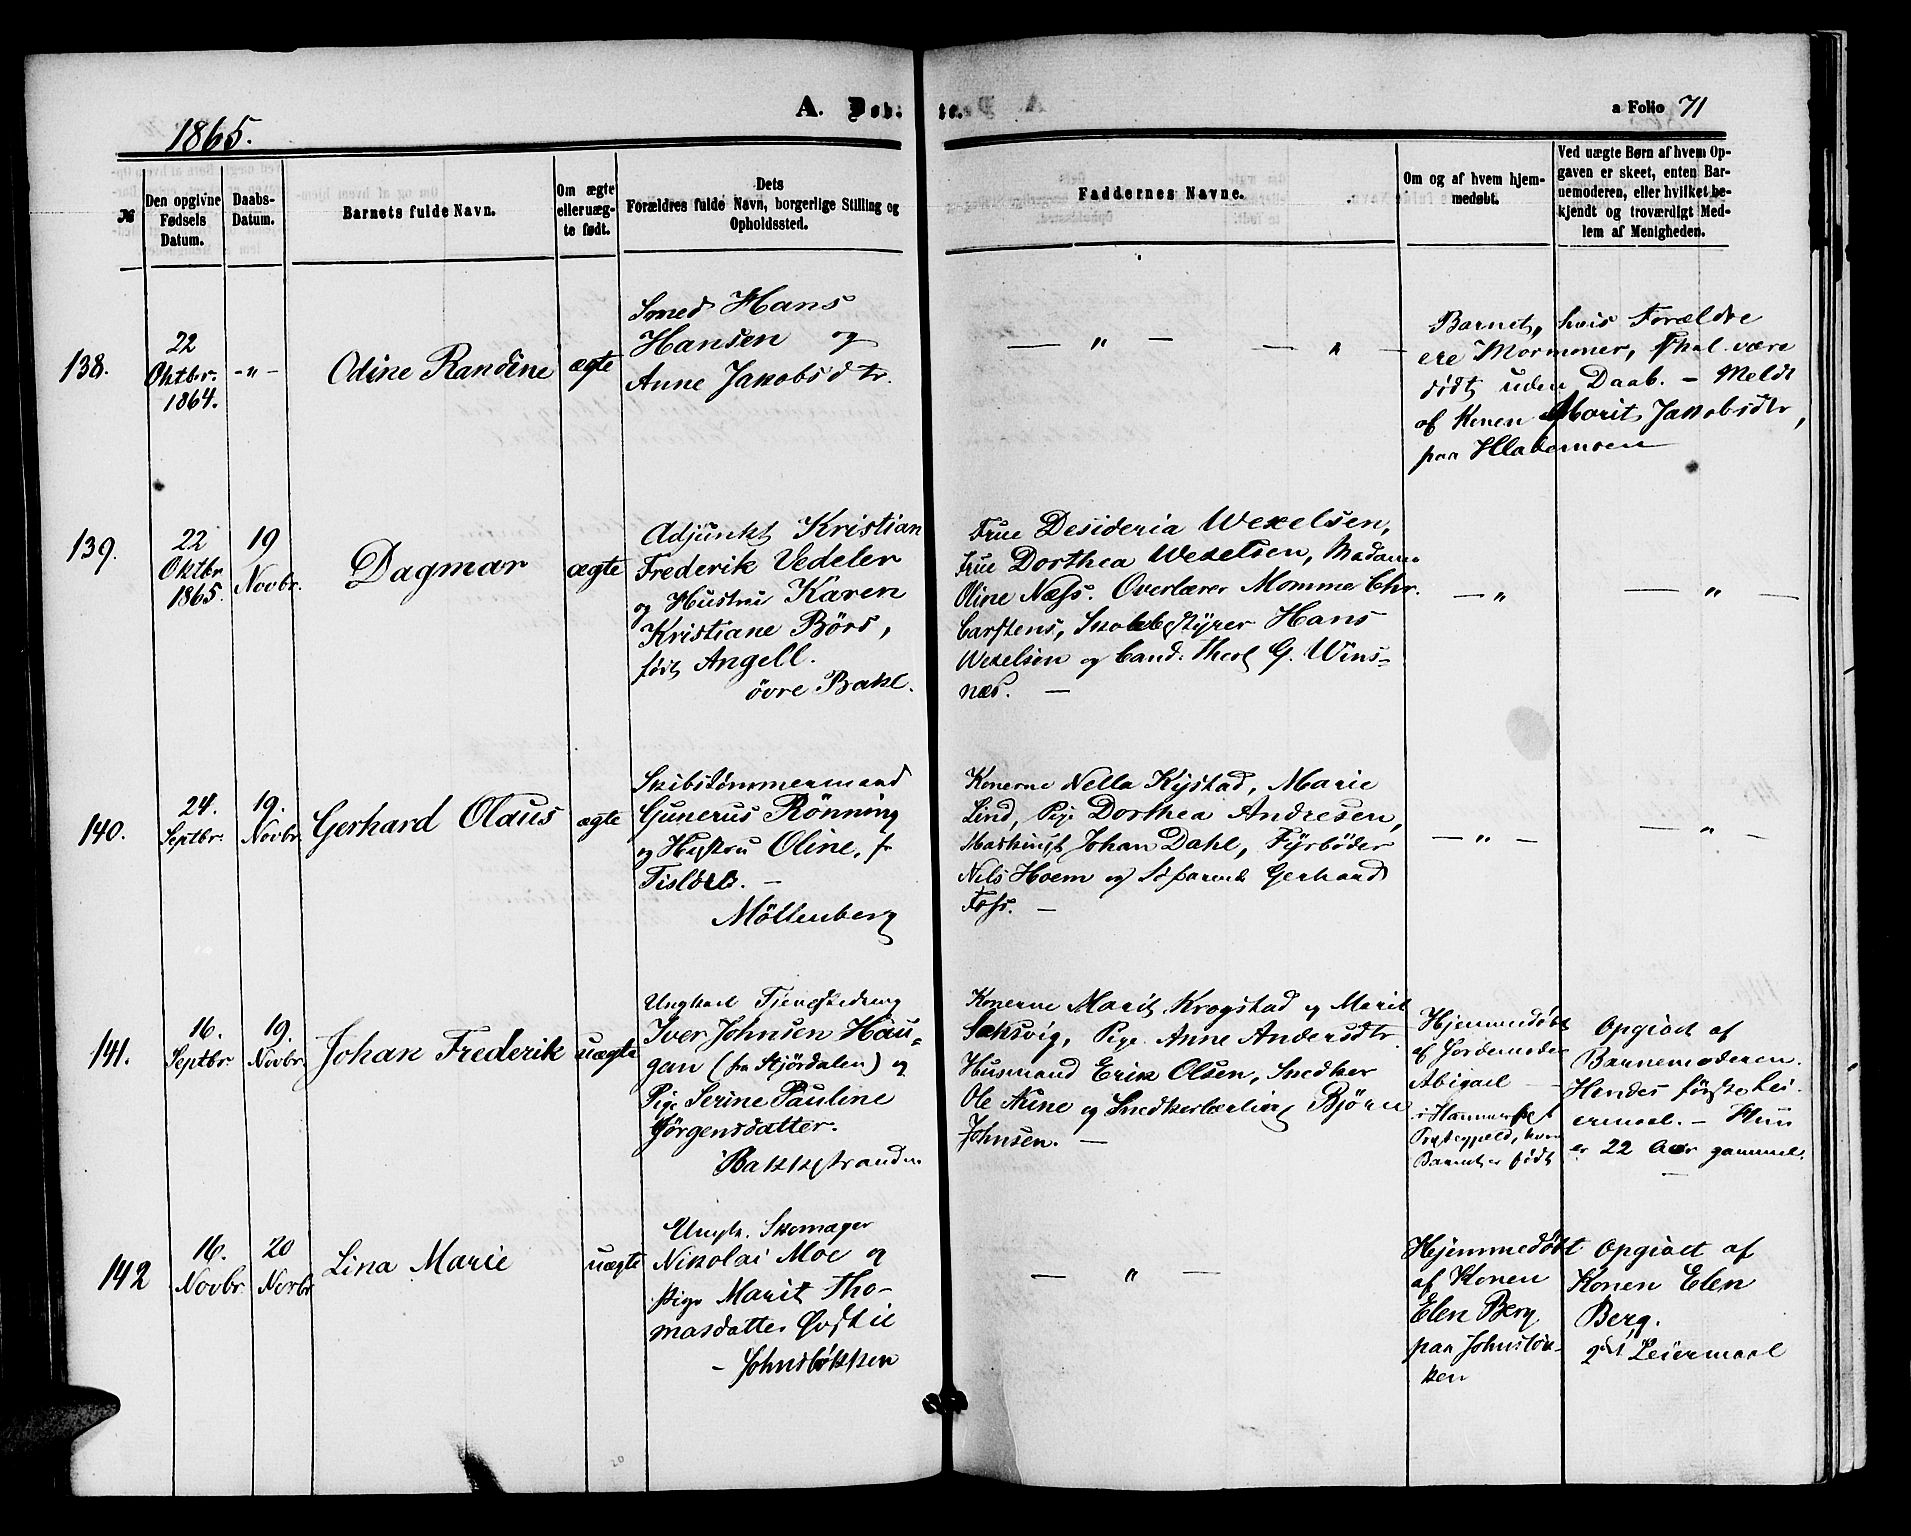 1865.
A. Døbte.
a Folio 71
№
Den opgivne
Fødsels
Datum.
Daabs-
Datum.
Barnets fulde Navn.
Om ægte
eller uæg-
te født.
Dets
Forældres fulde Navn, borgerlige Stilling og
Opholdssted.
Faddernes Navne.
Om og af hvem hjem-
medøbt.
Ved uægte Børn af hvem Op-
gaven er skeet, enten Bar-
nemoderen, eller hvilket be-
kjendt og troværdigt Med-
lem af Menigheden.
138.
22
Oktbr.
1864.
-„-
Odine Randine
ægte
Smed Hans
Hansen og
Anne Jakobsdtr.
— „ — — „ —
Barnet, hvis Forældre
ere Mormoner, skal være
født uden Daab. – Meldt
af Konen Marit Jakobsdtr,
paa Hlademoen
139.
22
Oktbr
1865.
19
Novbr.
Dagmar
ægte
Adjunkt Kristian
Frederik Vedeler
og Hustru Karen
Kristiane Børs,
født Angell.
øvre Bakl.
Frue Desideria Wexelsen,
Frue Dorthea Wexelsen, Madame
Oline Næss. Overlærer Momme Chr.
Carstens, Skolebestyrer Hans
Wexelsen og Cand. Theol G. Wins-
næs. —
— „
— „ —
140.
24.
Septbr.
19.
Novbr.
Gerhard Olaus
ægte
Skibstømmermand
Gunerus Rønning
og Hustru Oline, f.
Tisløv. —
Møllenberg
Konerne Nella Kystad, Marie
Lind, Pige Dorthea Andresen,
Maskinist Johan Dahl, Fyrbøder
Nils Hoem og Søfarende Gerhard
Foss. —
— „ —
— „ —
141.
16.
Septbr.
19.
Novbr.
Johan Frederik
uægte
Ungkarl Tjenestedreng
Iver Johnsen Hau-
gan (fra Stjørdalen) og
Pige Serine Pauline
Jørgensdatter.
Bakkstranden
Konerne Marit Krogstad og Marit
Saksvig, Pige Anne Andersdtr.
Husmand Erik Olsen, Snedker
Ole Aune og Snedkerlærling Bjørn
Johnsen. —
Hjemmedøbt
af Jordemoder
Abigael —
i Hammerfest
Præstegjeld, hvor
Barnet er født
Opgivet af
Barnemoderen.
Hendes første Lei-
ermaal. – Hun
er 22 Aar gammel.
—
142
16.
Novbr
20
Novbr
Lina Marie
uægte
Ungk. Skomager
Nikolai Moe og
Pige Marit Tho-
masdatter Qvstil
– Johnsløkken
— „ —
Hjemmedøbt
af Konen
Elen Berg
paa Johnsløk-
ken
Opgivet af
Konen Elen
Berg.
2det Leiermaal